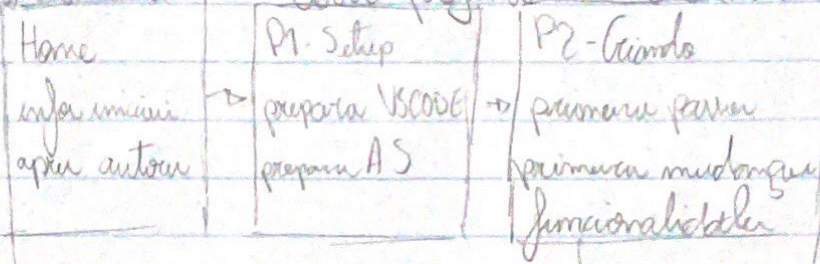 Home
infos iniciais
apres autores
P1- Setup
prepara VSCODE
prepara AS
P2-Criando
primeiros passos
primeiras mudanças
funcionalidades